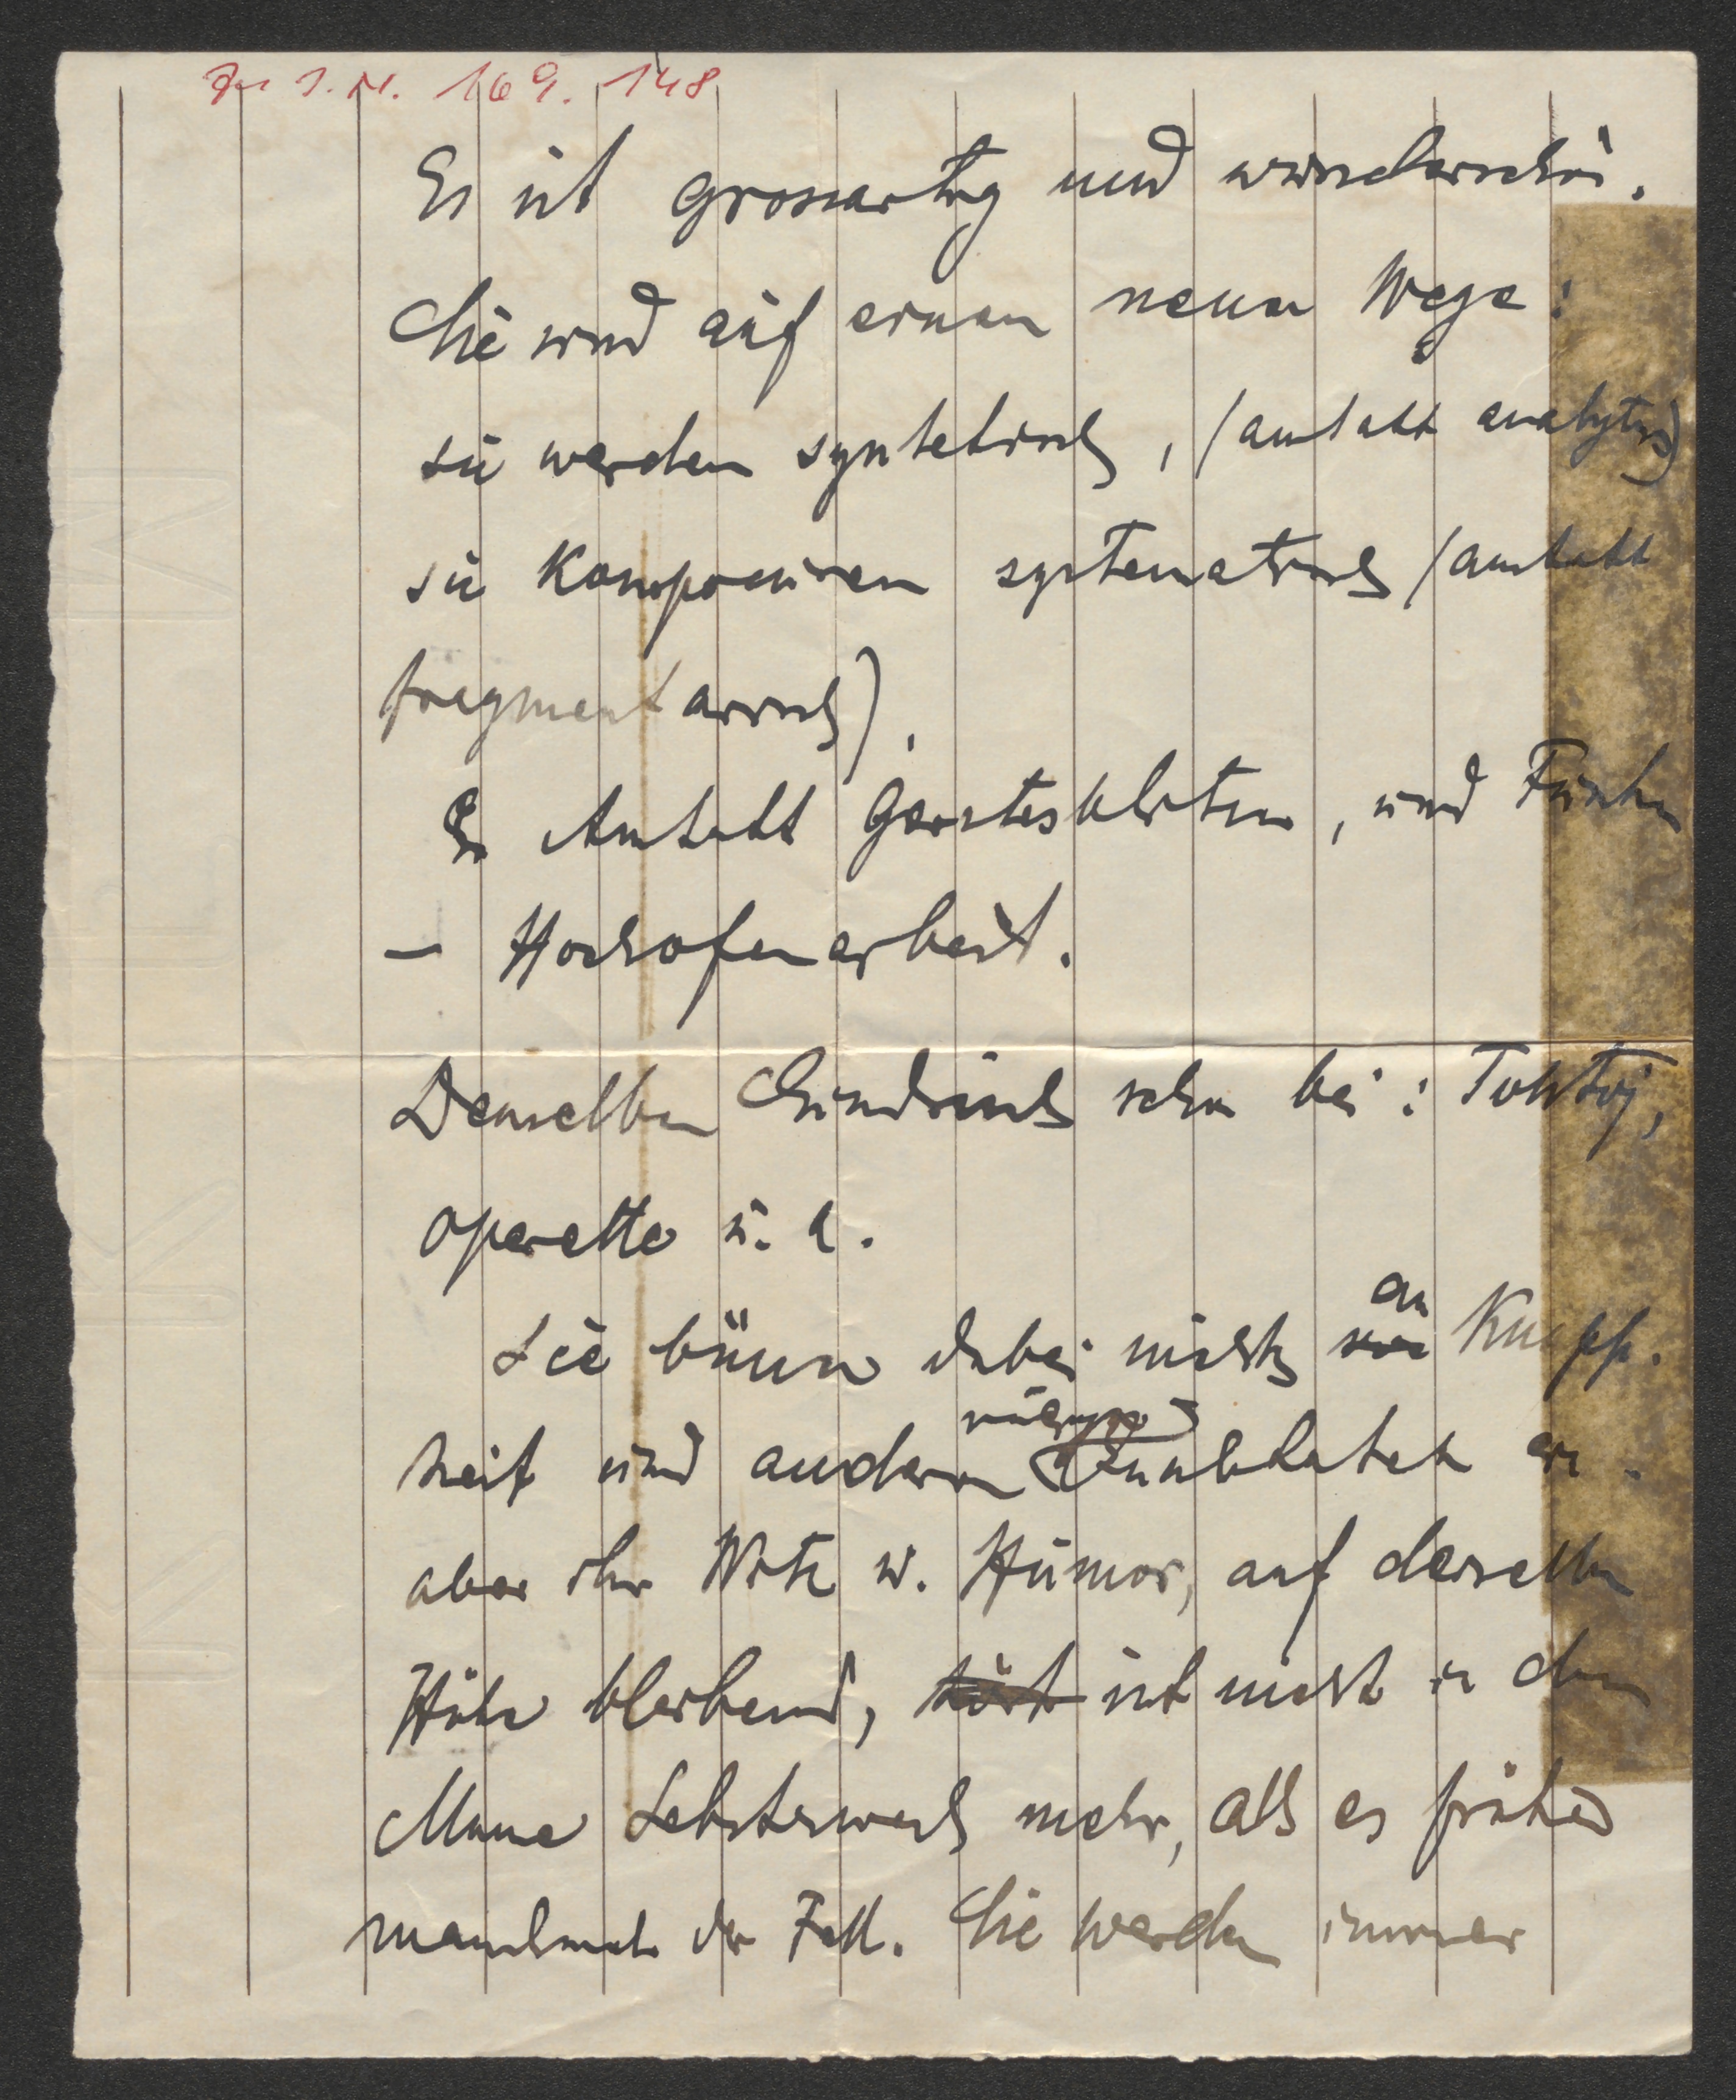 Zu I.N. 169.148
Es ist grossartig und wunderschön.
Sie sind auf einem neuen Wege:
sie werden syntetisch, (anstatt analytisch)
sie komponieren systematisch (anstatt
fragmentarisch).
Anstatt Geistesblitzen, und Funken
— Hochofenarbeit.
Denselben Eindruck schon bei: Tolstoj,
Operette u. a.
Sie büssen dabei nichts an Knapp-
heit und anderen Qualitäten ein
aber ihr Witz u. Humor, auf derselben
Höhe bleibend, ist nicht in dem
Masse Selbstzweck mehr, als es früher
manchmal der Fall. Sie werden immer